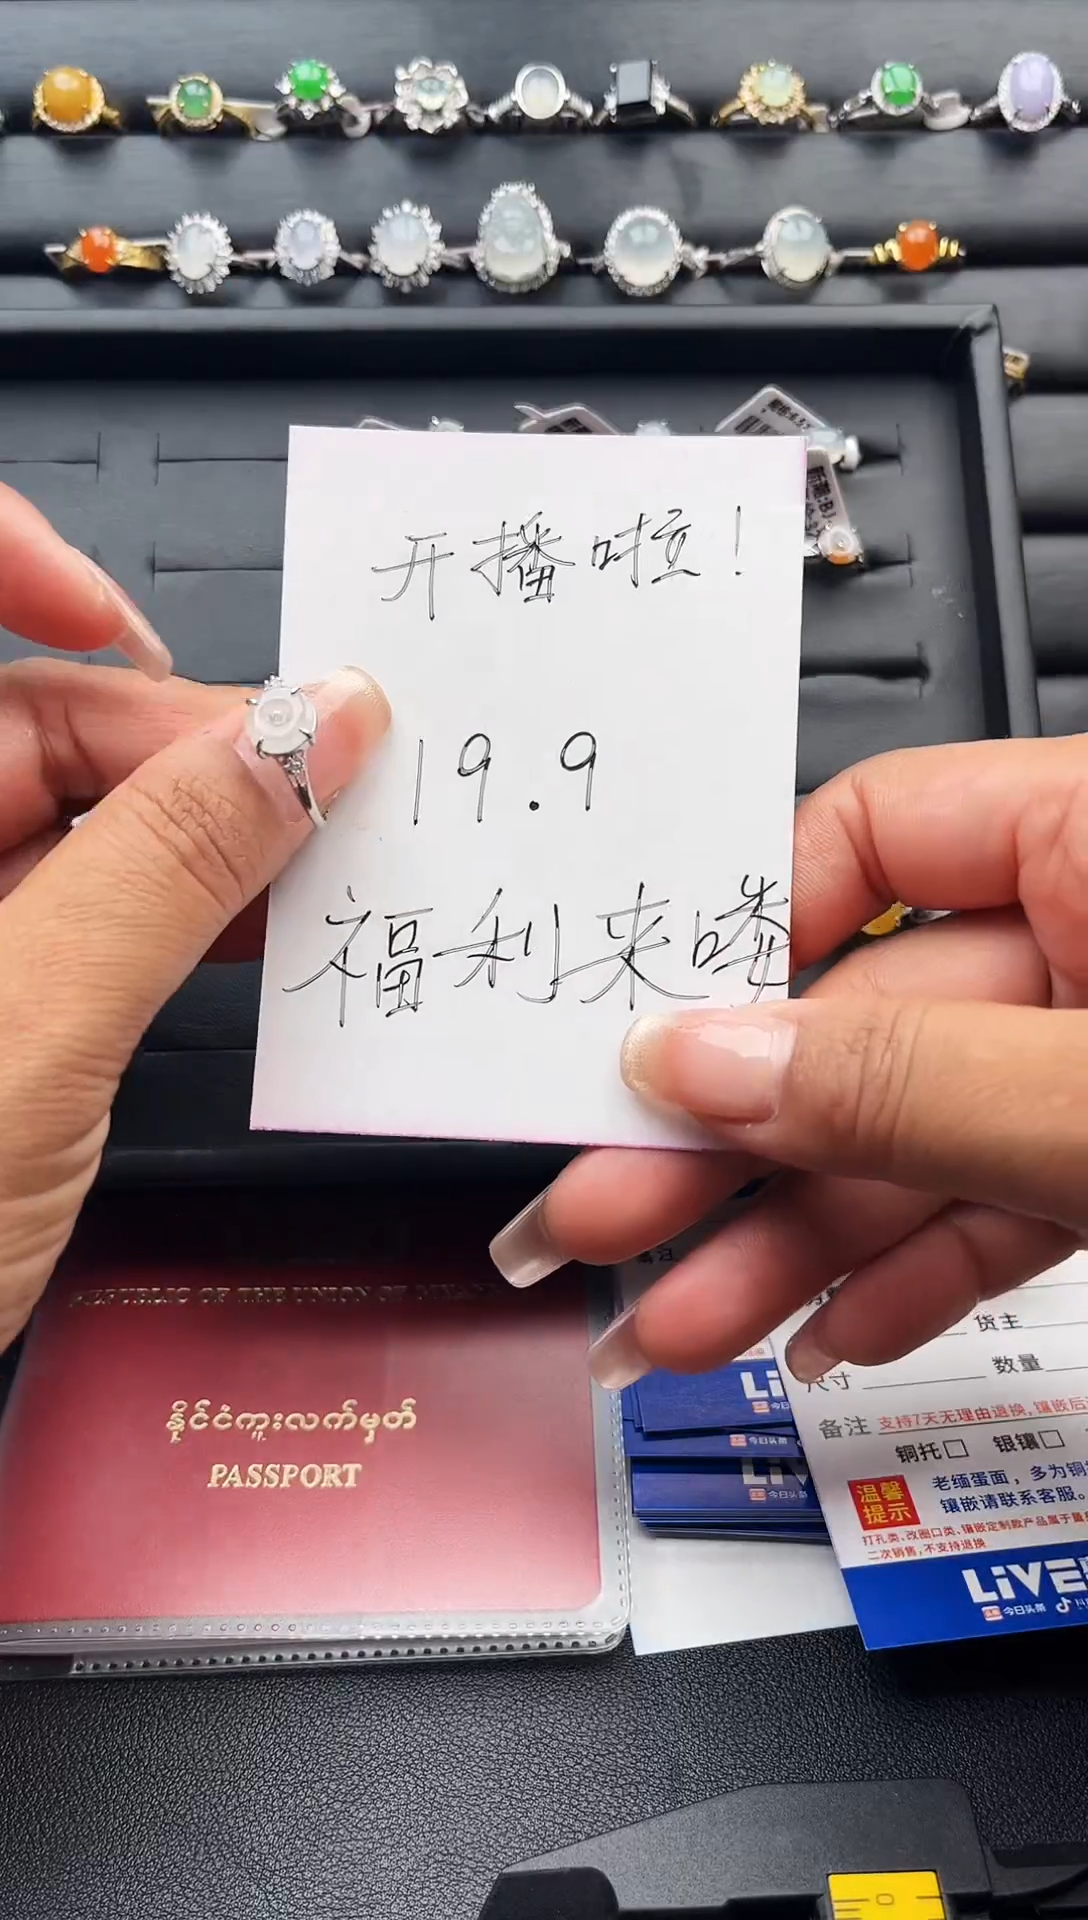 开播啦！
19.9
福利来喽
REPUBLIC OF THE UNION OF
နိုင်ငံကူးလက်မှတ်
PASSPORT
货主
尺寸
数量
备注 支持7天无理由退换,镶嵌后
铜托□ 银镶□
温馨
提示
老缅蛋面，多为铜
镶嵌请联系客服。
打孔类、改圈口类、镶嵌定制款产品属于
二次销售,不支持退换
LiVE
今日头条